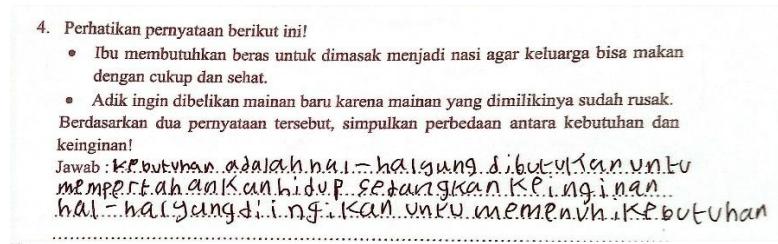 4. Perhatikan pernyataan berikut ini!
• Ibu membutuhkan beras untuk dimasak menjadi nasi agar keluarga bisa makan
dengan cukup dan sehat.
• Adik ingin dibelikan mainan baru karena mainan yang dimilikinya sudah rusak.
Berdasarkan dua pernyataan tersebut, simpulkan perbedaan antara kebutuhan dan
keinginan!
Jawab : kebutuhan adalah hal-hal yung dibutuhkan untu
mempertahankan hidup sedangkan keinginan
hal-hal yang diingikan untu memenuhi kebutuhan